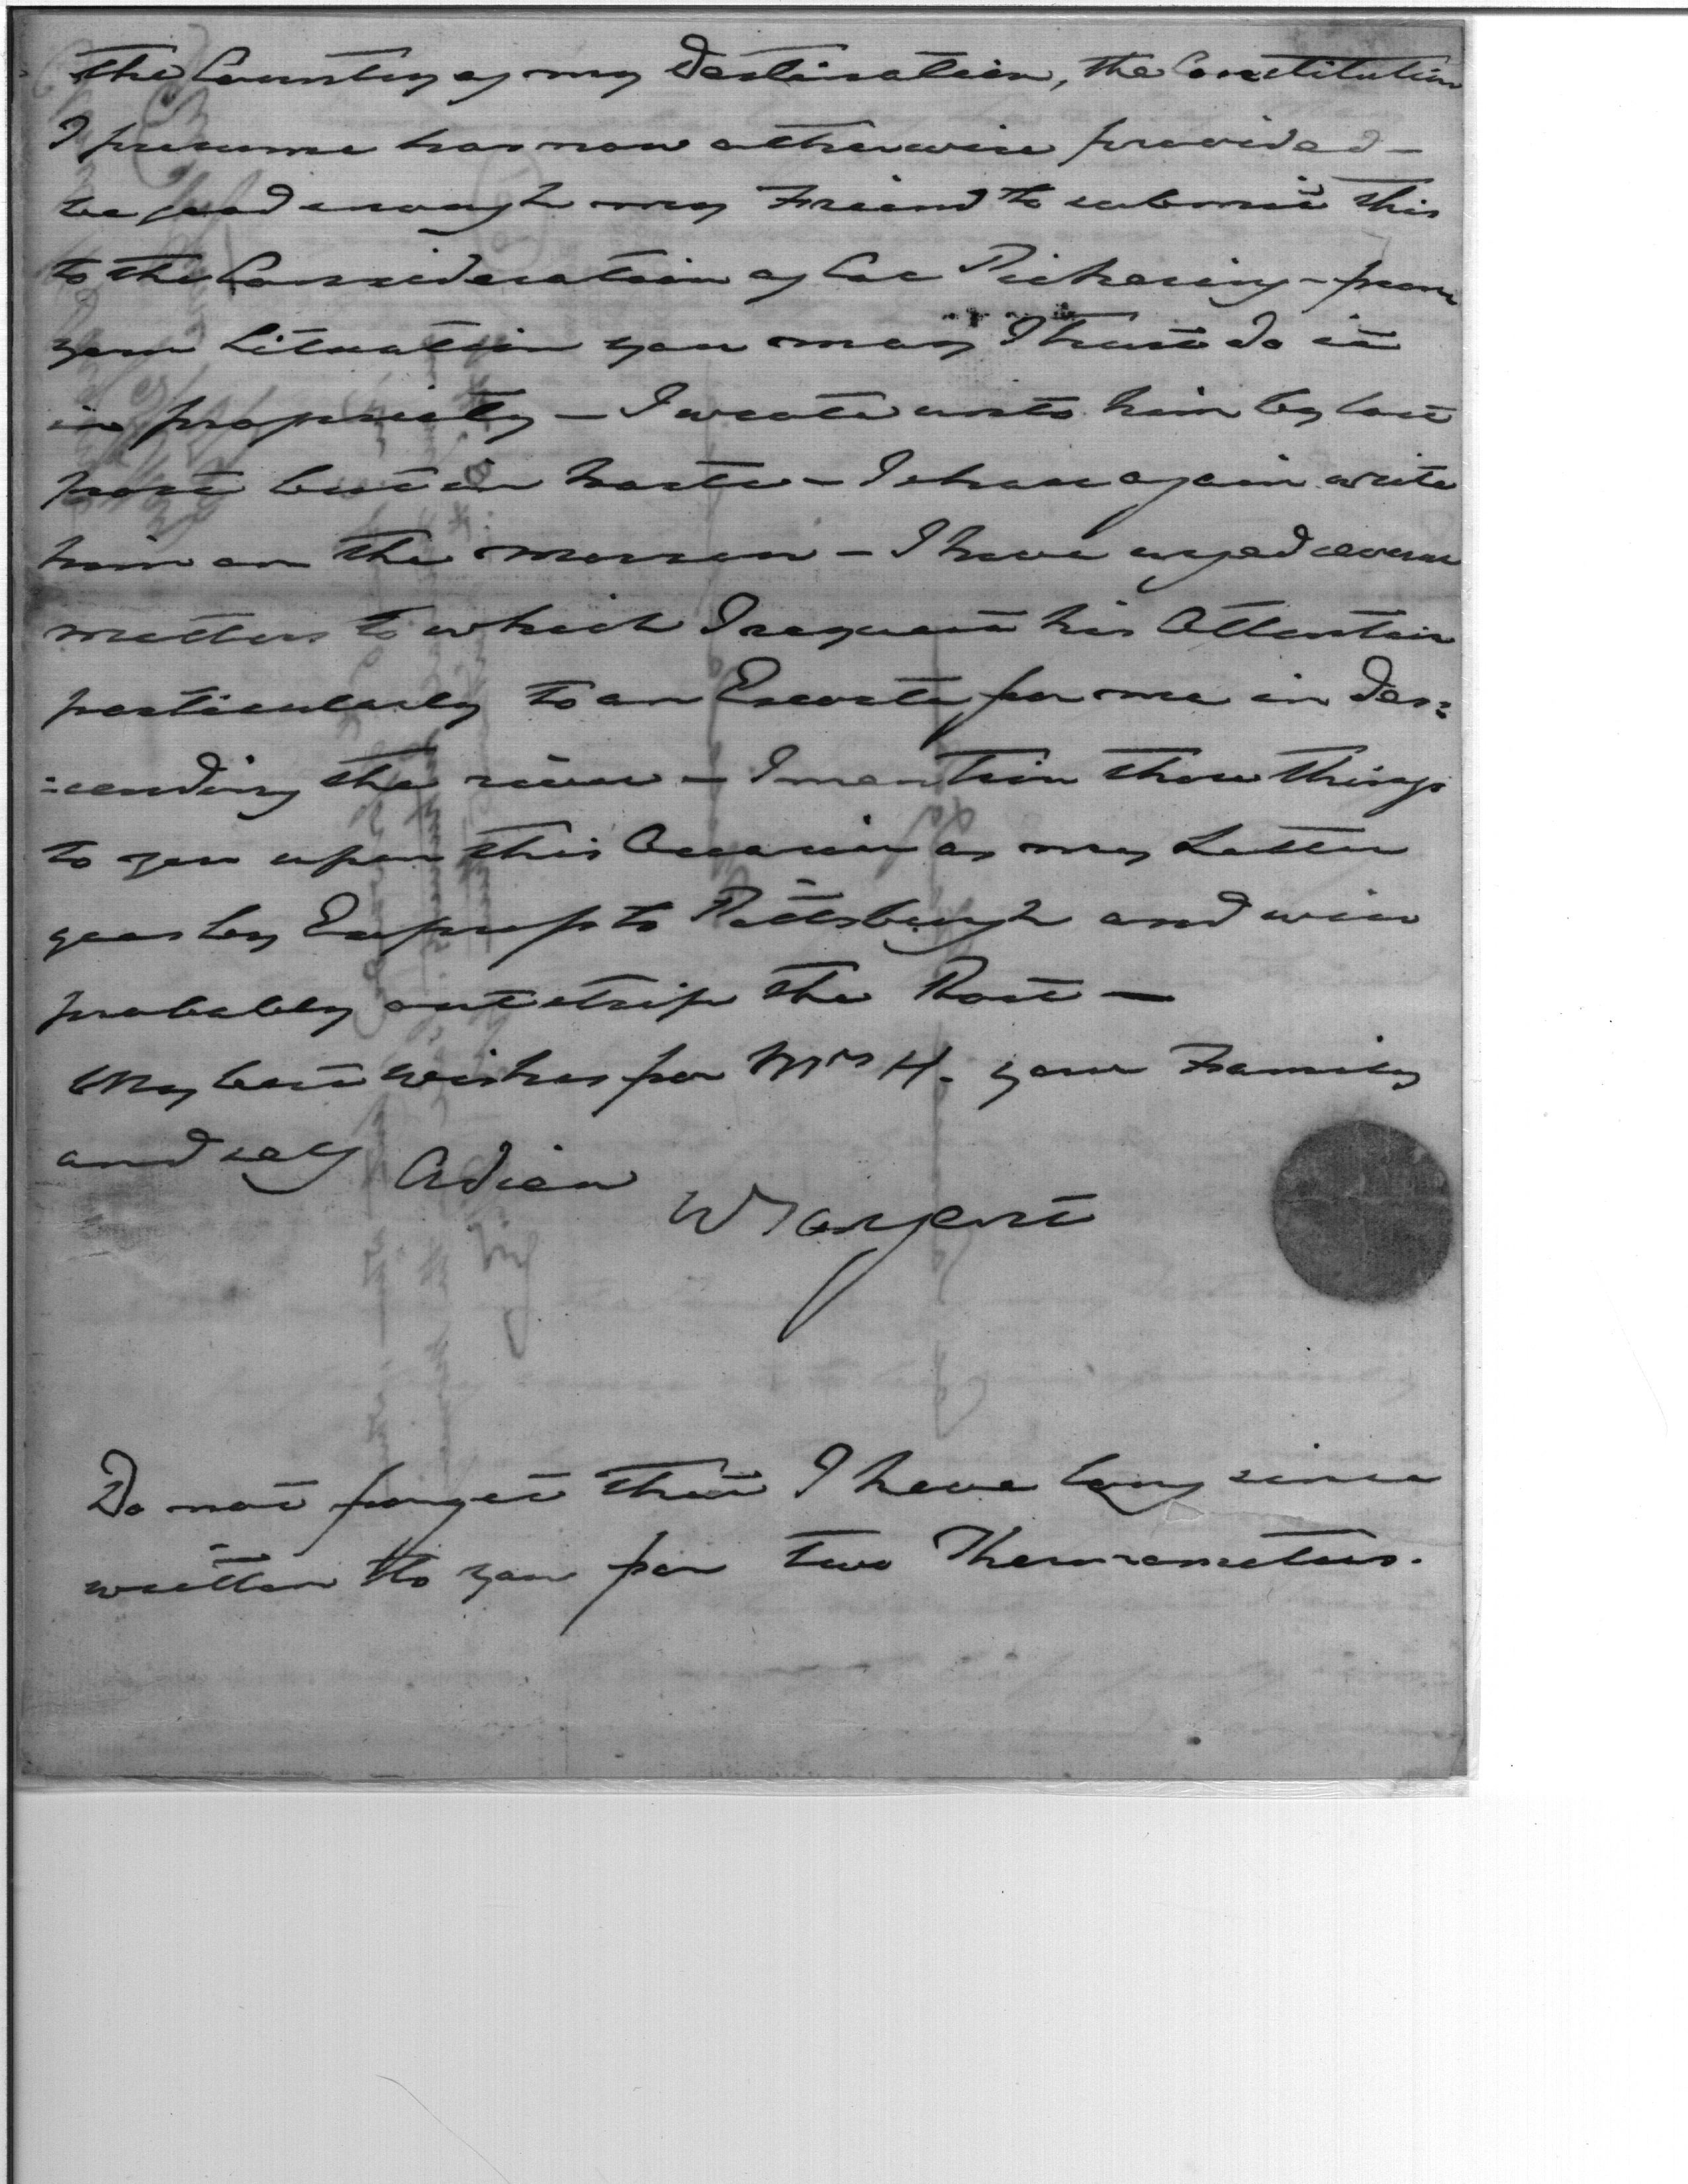 the Country of my Destination, the Constitution
I presume has now otherwise provided —
be good enough my Friend to submit this
to the Consideration of Col Pickering – from
your Situation you may I trust do it
in propriety — I wrote unto him by last
post but in haste — I shall again write
him on the morrow — I have urged several
matters to which I request his Attention
particularly to an Escorte for me in des:
:cending the river — I mention these things
to you upon this Occasion as my Letter
goes by Express to Pittsburgh and will
probably outstrip the Post —
My best wishes for Mrs H. your Family
and self Adieu
W Sargent
Do not forget that I have long since
written to you for two Thermometers.